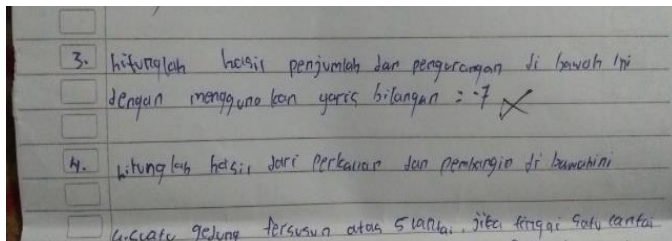 3. hitunglah hasil penjumlah dan pengurangan di bawah ini
dengan menggunakan garis bilangan = -7
4. hitunglah hasil dari perkalian dan pembangin di bawahini
4. Suatu gedung tersusun atas 5 lantai, jika tinggi satu lantai